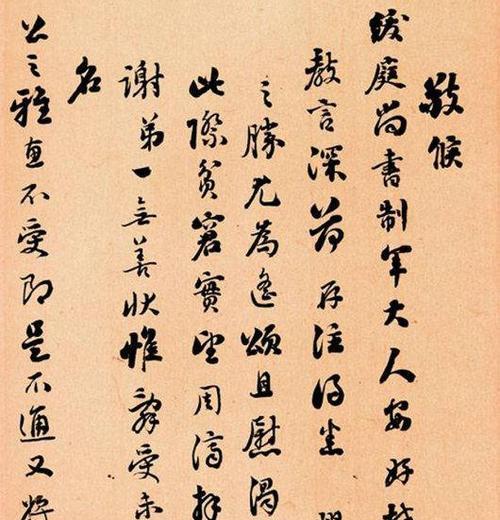 敬候
緩庭尚書制軍大人安好
教言深荷存注得悉
之勝尤為遙頌且慰渴
此際貧窘實望周濟拜
謝弟一無善狀惟辭受
名
公之雅直不受即是不通又將